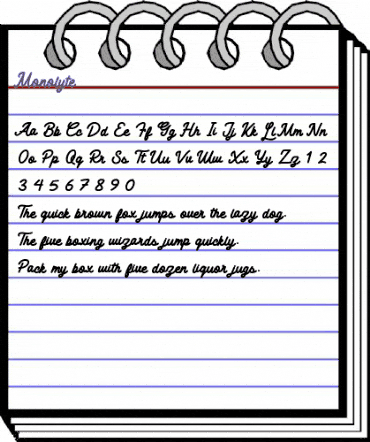 Monolyte
Aa Bb Cc Dd Ee Ff Gg Hh Ii Jj Kk Ll Mm Nn
Oo Pp Qq Rr Ss Tt Uu Vv Ww Xx Yy Zz 1 2
3 4 5 6 7 8 9 0
The quick brown fox jumps over the lazy dog.
The five boxing wizards jump quickly.
Pack my box with five dozen liquor jugs.